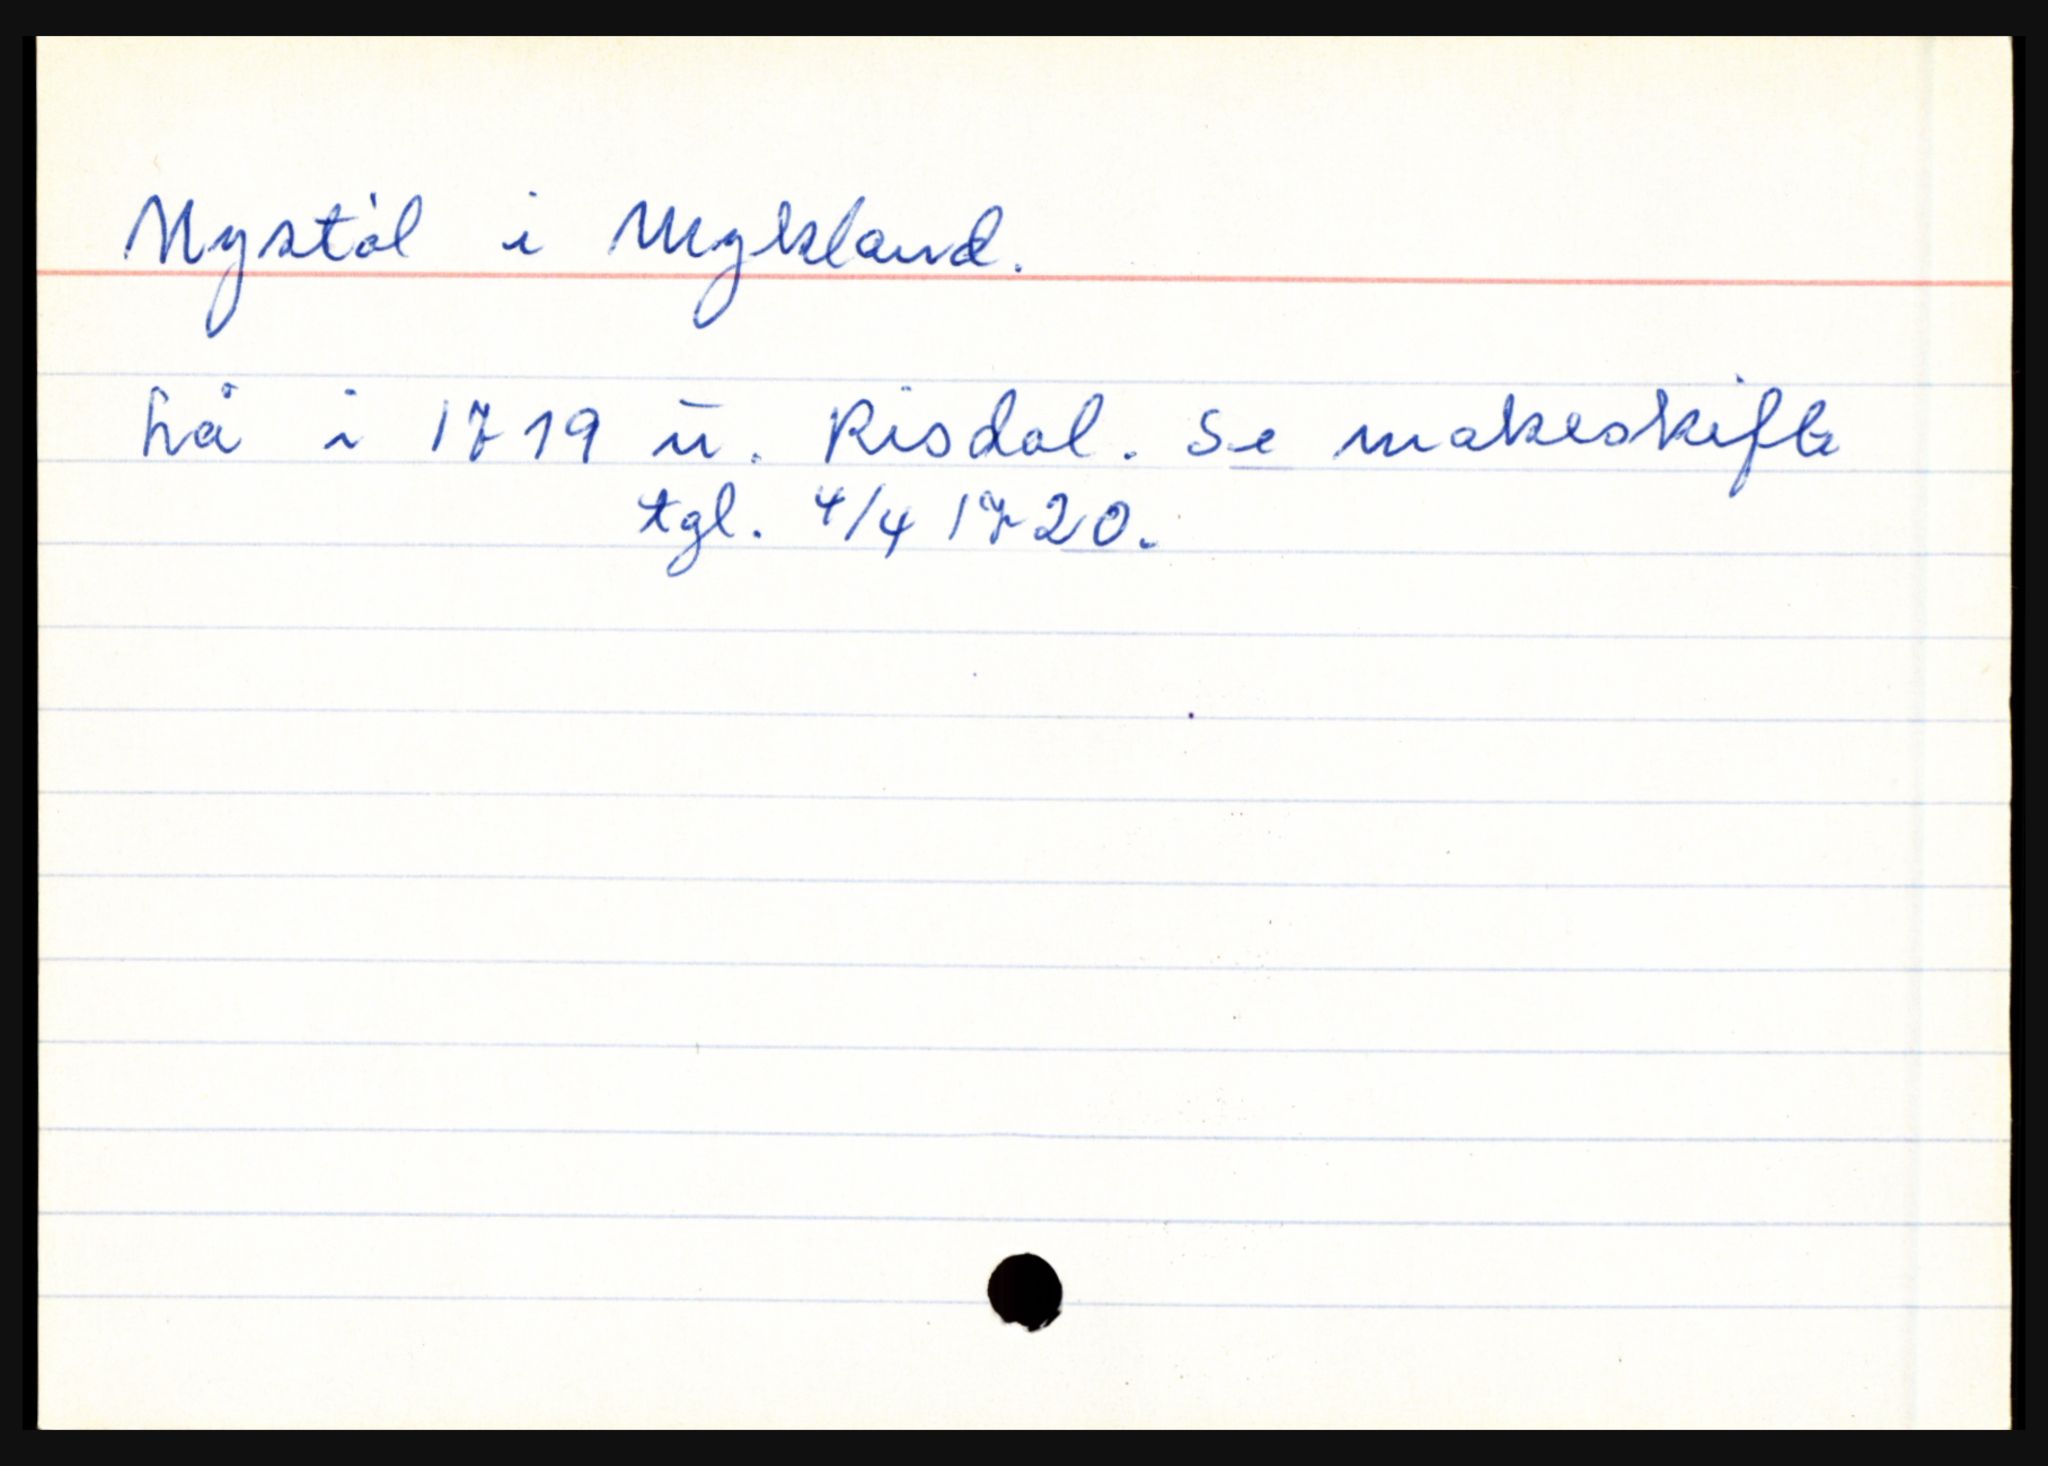 Nystøl i Mykland.
Lå i 1719 u. Risdal. Se makeskifte
tgl. 4/4 1720.